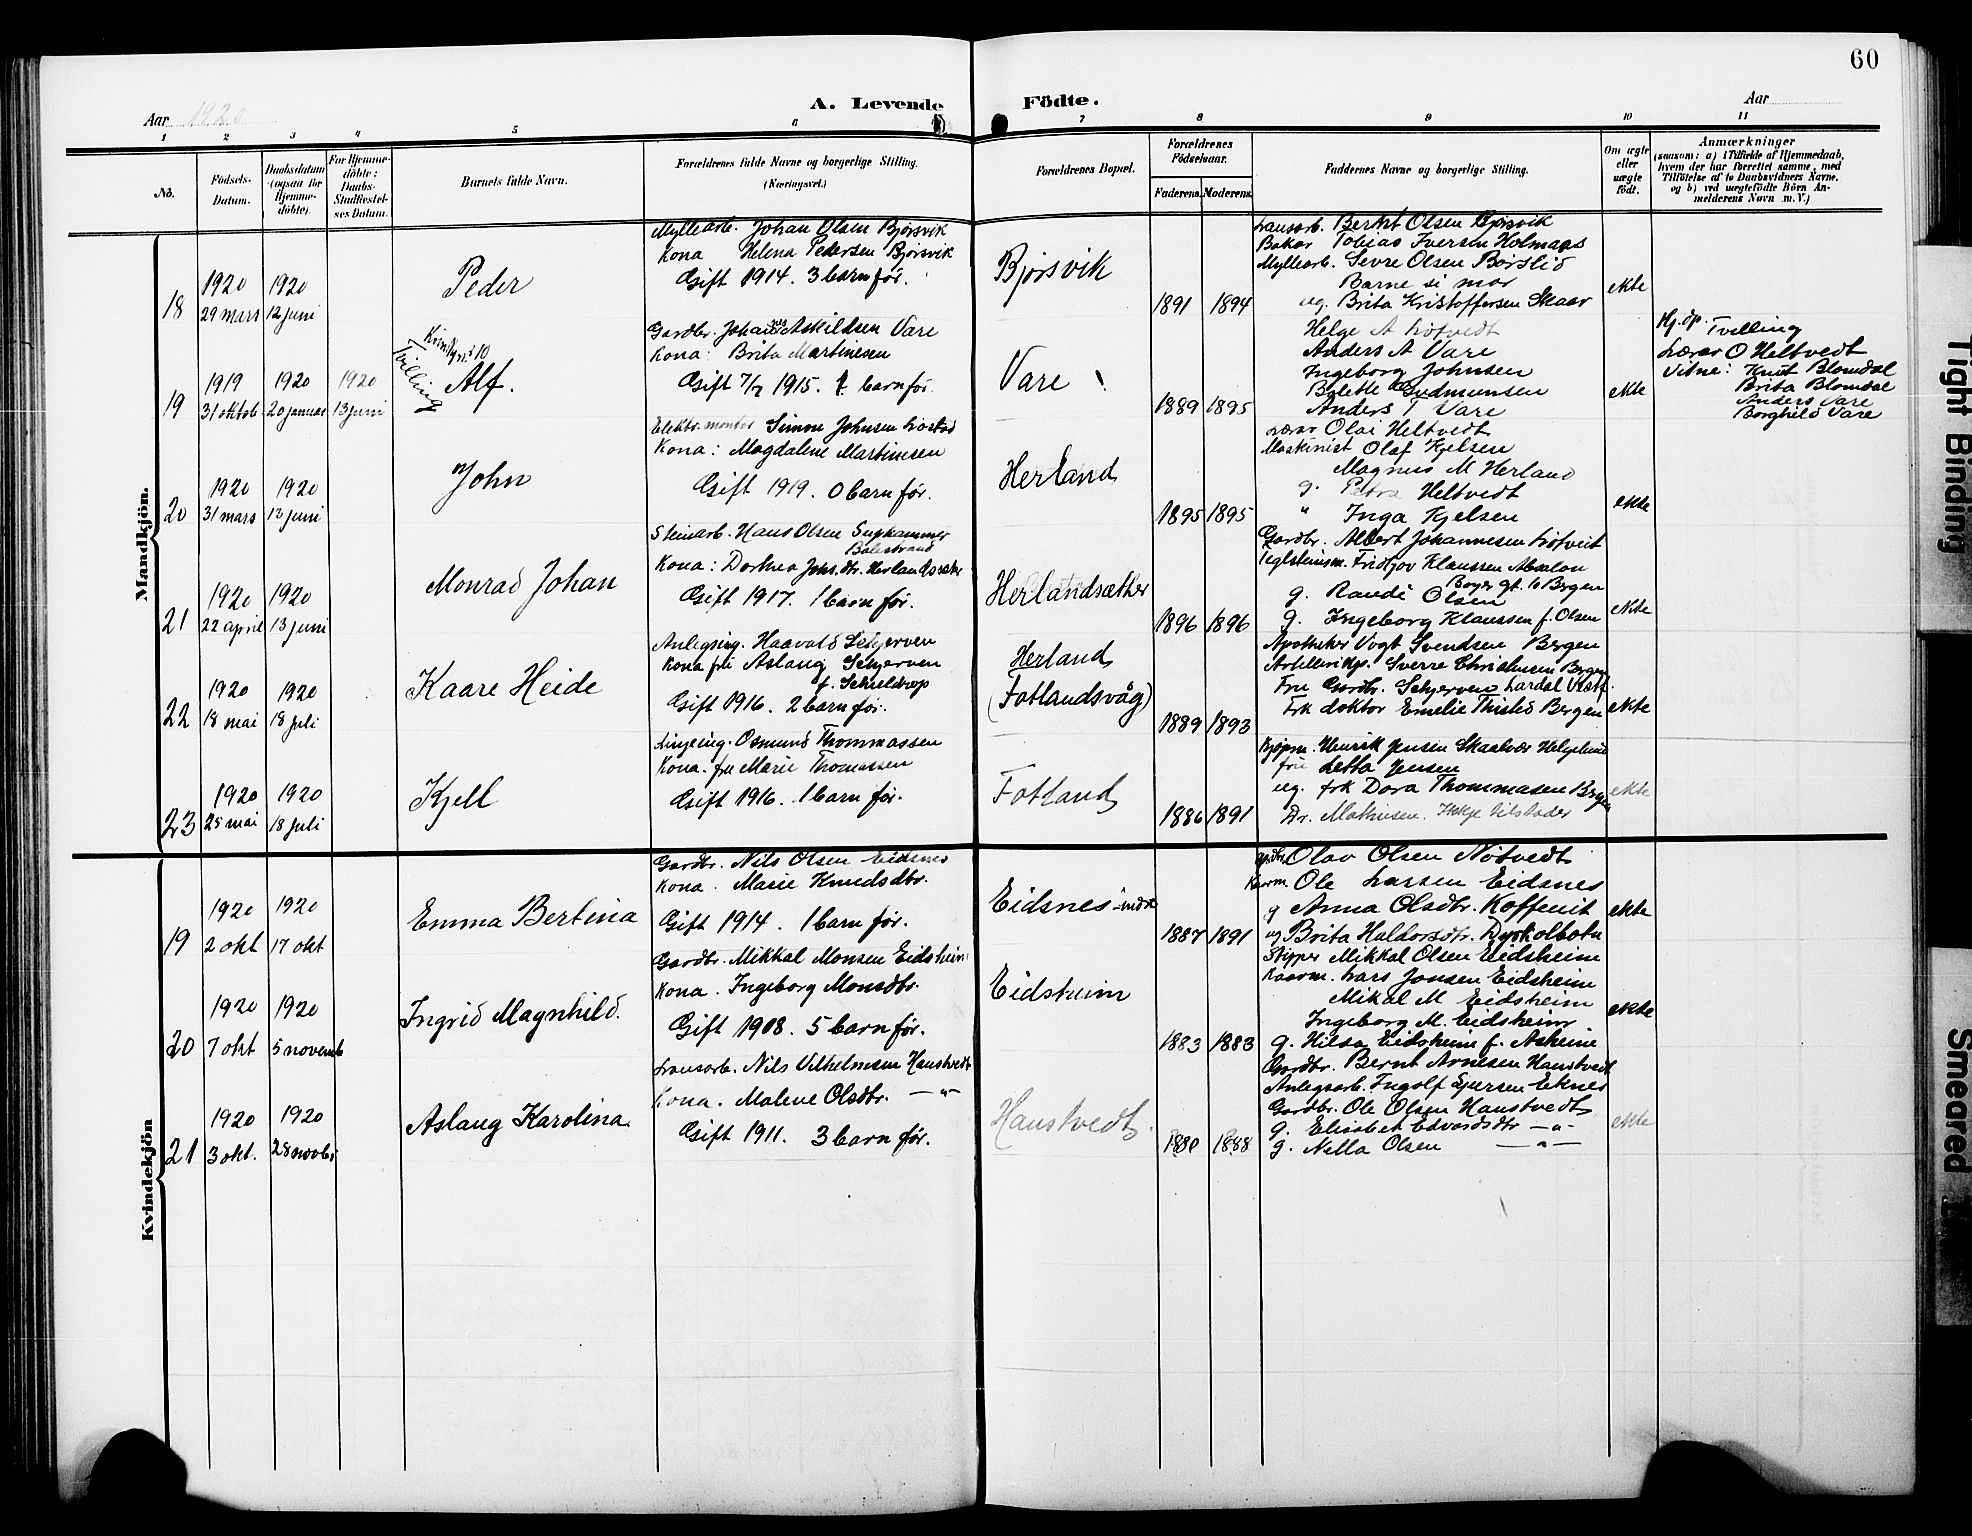 60
Aar 1920
A. Levende Födte.
Aar
1 2 3 4 5 6 7 8 9 10 11
No.
Födsels-Datum.
Daabsdatum (ogsaa for Hjemme-döbte)
For Hjemme-döbte: Daabs-Stadfæstel-ses Datum.
Barnets fulde Navn.
Forældrenes fulde Navne og borgerlige Stilling.
(Næringsvei.)
Forældrenes Bopæl.
Forældrenes Födselsaar.
Faderens. Moderens.
Faddernes Navne og borgerlige Stilling.
Om ægte eller uægte födt.
Anmærkninger
(saasom: a) i Tilfælde af Hjemmedaab,
hvem der har forrettet samme, med
Tilföielse af to Daabsvidners Navne,
og b) ved uægtefödte Börn An-
melderens Navn m. V.)
Mandkjön.
18
1920 29 mars
1920 12 juni
Peder
Myllearb. Johan Olsen Bjørsvik
Kona Helena Pedersen Bjørsvik
Gift 1914. 3 barn før.
Bjørsvik
1891 1894
Lausarb. Berhet Olsen Bjørsvik
Bakar Tobias Iversen Holmaas
Myllearb. Sevre Olsen Børslid
Barne si mor
ug. Brita Kristoffersen Skaar
ekte
19
1919 31 oktob.
1920 20 januar
1920 13 juni
Tvilling
Alf.
Gardbr. Johannes Askildsen Vare
Kona: Brita Martinesen
Gift 7/7 1915. barn før.
Vare
1889 1895
Helge A Løtvedt
Anders A Vare
Ingeborg Johnsen
Bolette Gudmunsen
Anders T Vare
ekte
Hj. dp. Tvilling
Lærar O Heltvedt
Vitne: Knut Blomdal
Brita Blomdal
Anders Vare
Borghild Vare
20
1920 31 mars
1920 13 juni
John
Elektr. montør Simon Johnsen
Kona: Magdalene Martinesen
Gift 1919. 0 barn før.
Herland
1895 1895
Lærar Olai Heltvedt
Maskinist Olaf Kjelsen
Magnus M Herland
g. Petra Heltvedt
" Inga Kjelsen
ekte
21
1920 22 april
1920 13 juni
Monrad Johan
Steinarb. Hans Olsen Supkammer
Balestrand
Kona: Dorthea Johs. dr. Herlandsæter
Gift 1917. 1 barn før.
Herlandsæther
1896 1896
Gardbr. Albert Johannesen Løtveit
Teglsteinsm. Fridtjov Klaussen
g. Randi Olsen
g. Ingeborg Klaussen f. Olsen
ekte
22
1920 18 mai
1920 18 juli
Kaare Heide
Anlegsing. Haavald Schjerven
Kona fru Aslaug Schjerven
f. Schieldrop
Gift 1916. 2 barn før.
Herland
(Fotlandsvåg)
1889 1893
Apotheker Vogt Svendsen Bergen
Artillerikp. Sverre Christensen Bergen
Fru Gardbr. Schjerven Lardal Vestf.
Frk doktor Emelie Thisted Bergen
ekte
23
1920 25 mai
1920 18 juli
Kjell
Linjeing. Osmund Thommassen
Kona. fru Marie Thomassen
Gift 1916. 1 barn før.
Fotland
1886 1891
Kjøpm. Henrik Jensen Skaalvær Helgeland
fru Letta Jensen
ug. frk Dora Thommasen Bergen
Dr. Mathiesen. Ikkje tilstader
ekte
Kvindekjön
19
1920 2 okt
1920 17 okt
Emma Bertina
Gardbr. Nils Olsen Eidsnes
Kona. Marie Knudsdtr.
Gift 1914. 1 barn før.
Eidsnes indre
1887 1891
gardbr. Olav Olsen Nøtvedt
Kaarm. Ole Larsen Eidsnes
g Anna Olsdtr. Kofferit
ug Brita Haldorsdtr. Dyrkolbotn
ekte
20
1920 7 okt
1920 5 novemb
Ingrid Magnhild.
Gardbr. Mikkal Monsen Eidsheim
Kona. Ingeborg Monsdtr.
Gift 1908. 5 barn før.
Eidsheim
1883 1883
Skipper Mikkal Olsen Eidsheim
Kaarm. Lars Jonsen Eidsheim
Mikal M. Eidsheim
Ingeborg M. Eidsheim
g. Hilda Eidsheim f. Asheim
ekte
21
1920 3 okt.
1920 28 novbr
Aslaug Karolina.
Lausarb. Nils Vilhelmsen Haustvedt
Kona. Malene Olsdtr. —"—
Gift 1911. 3 barn før.
Haustvedt.
1880 1888
Gardbr. Bernt Arnesen Haustvedt
Anlegsarb. Ingolf Ejersen Eknes
Gardbr. Ole Olsen Haustvedt
g. Elisabet Edvardsdtr —"—
g. Nella Olsen —"—
ekte
Tight Binding
Smeared